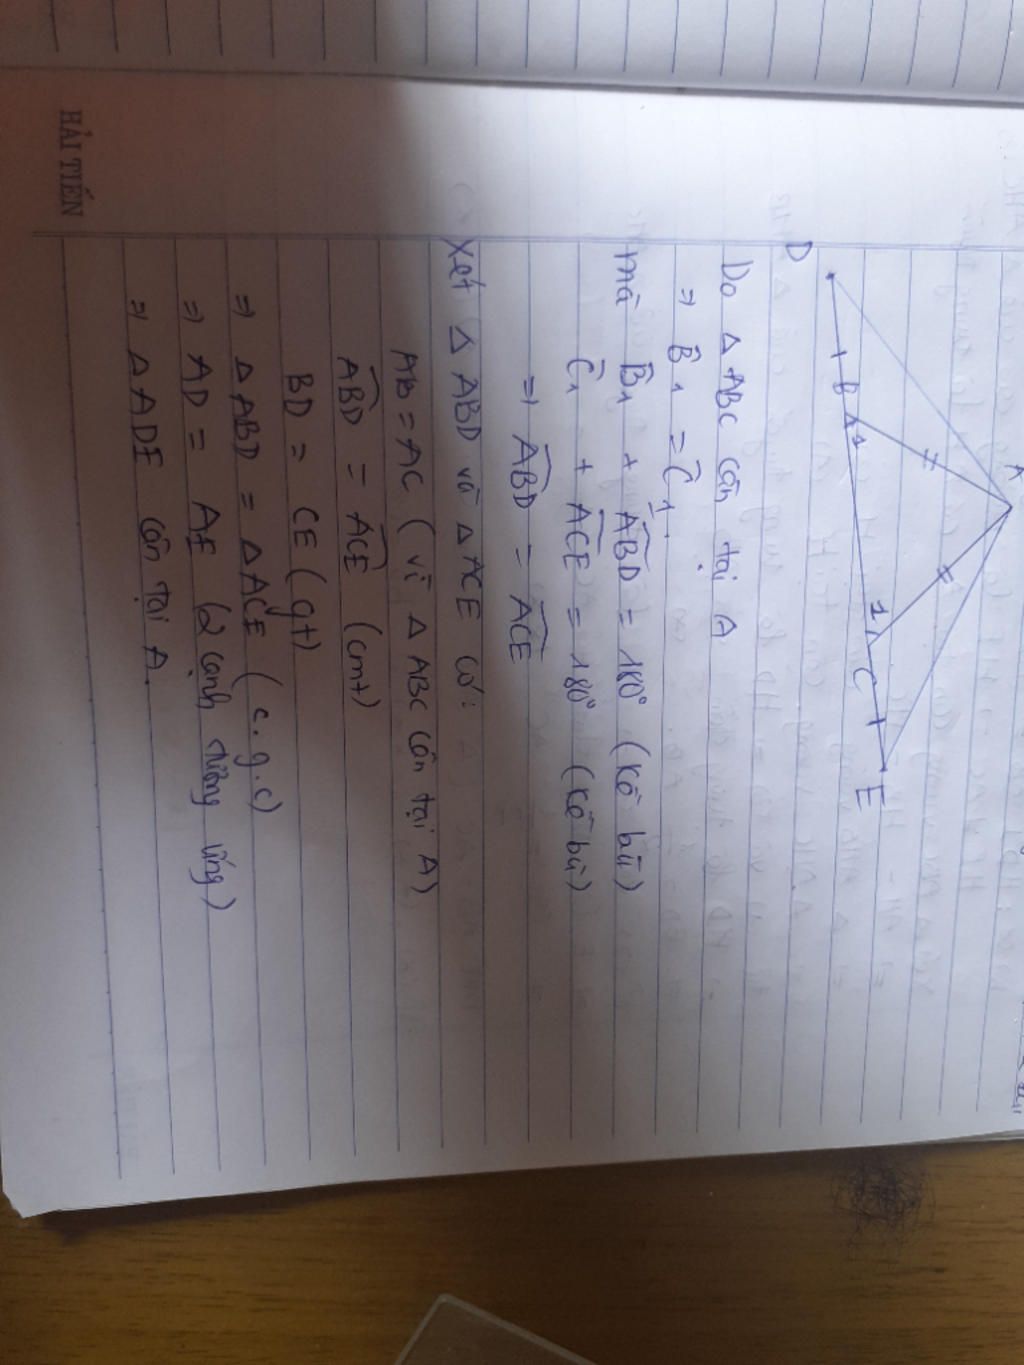 A
D
B
1
1
C
E
Do Δ ABC cân tại A
⇒ B̂1 = Ĉ1.
mà B̂1 + ABD̂ = 180° (kề bù)
Ĉ1 + ACÊ = 180° (kề bù)
⇒ ABD̂ = ACÊ
Xét Δ ABD và Δ ACE có:
AB = AC (vì Δ ABC cân tại A)
ABD̂ = ACÊ (cmt)
BD = CE (gt)
⇒ Δ ABD = Δ ACE (c.g.c)
⇒ AD = AE (2 cạnh tương ứng)
⇒ Δ ADE cân tại A.
HẢI TIẾN